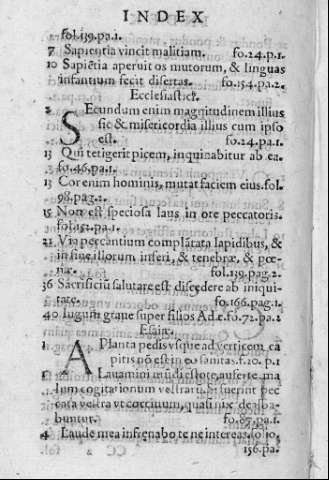 INDEX
fol.139.pa.1.
7 Sapientia vincit malitiam. fo.24.p.1.
10 Sapiẽtia aperuit os mutorum, & linguas
infantium fecit disertas. fo.154.pa.2.
Ecclesiastici.
2 Secundum enim magnitudinem illius
sic & misericordia illius cum ipso
est. fo.24.pa.1.
13 Qui tetigerit picem, inquinabitur ab ea.
fo.46.pa.1.
13 Cor enim hominis, mutat faciem eius.fol.
98.pag.2.
15 Non est speciosa laus in ore peccatoris.
fol.151.pa.1.
21 Via peccantium complãtata lapidibus, &
in fine illorum inferi, & tenebræ, & pœ-
næ. fol.139.pag.2.
36 Sacrificiũ salutare est discedere ab iniqui-
tate. fo.166.pag.1.
40 Iugum graue super filios Adæ.fo.72.pa.2
Esaiæ.
1. A Planta pedis vsque ad verticem ca
pitis nõ est in eo sanitas.f.10.p.1
1. Lauamini mũdi estote, auferte ma
lum cogitationum vestrarũ. si fuerint pec
cata vestra vt coccinum, quasi nix dealba-
buntur. fo.87.pa.1.
4 Laude mea infrenabo te ne intereas.folio,
156.pa.